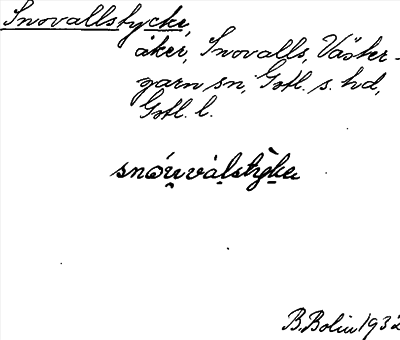 Snovallstycke,
åker, Snovalls, Väster-
garn sn, Gotl. s. hd,
Gotl. l.
snóu̯vàlstỳkæ
B. Bolin 1932